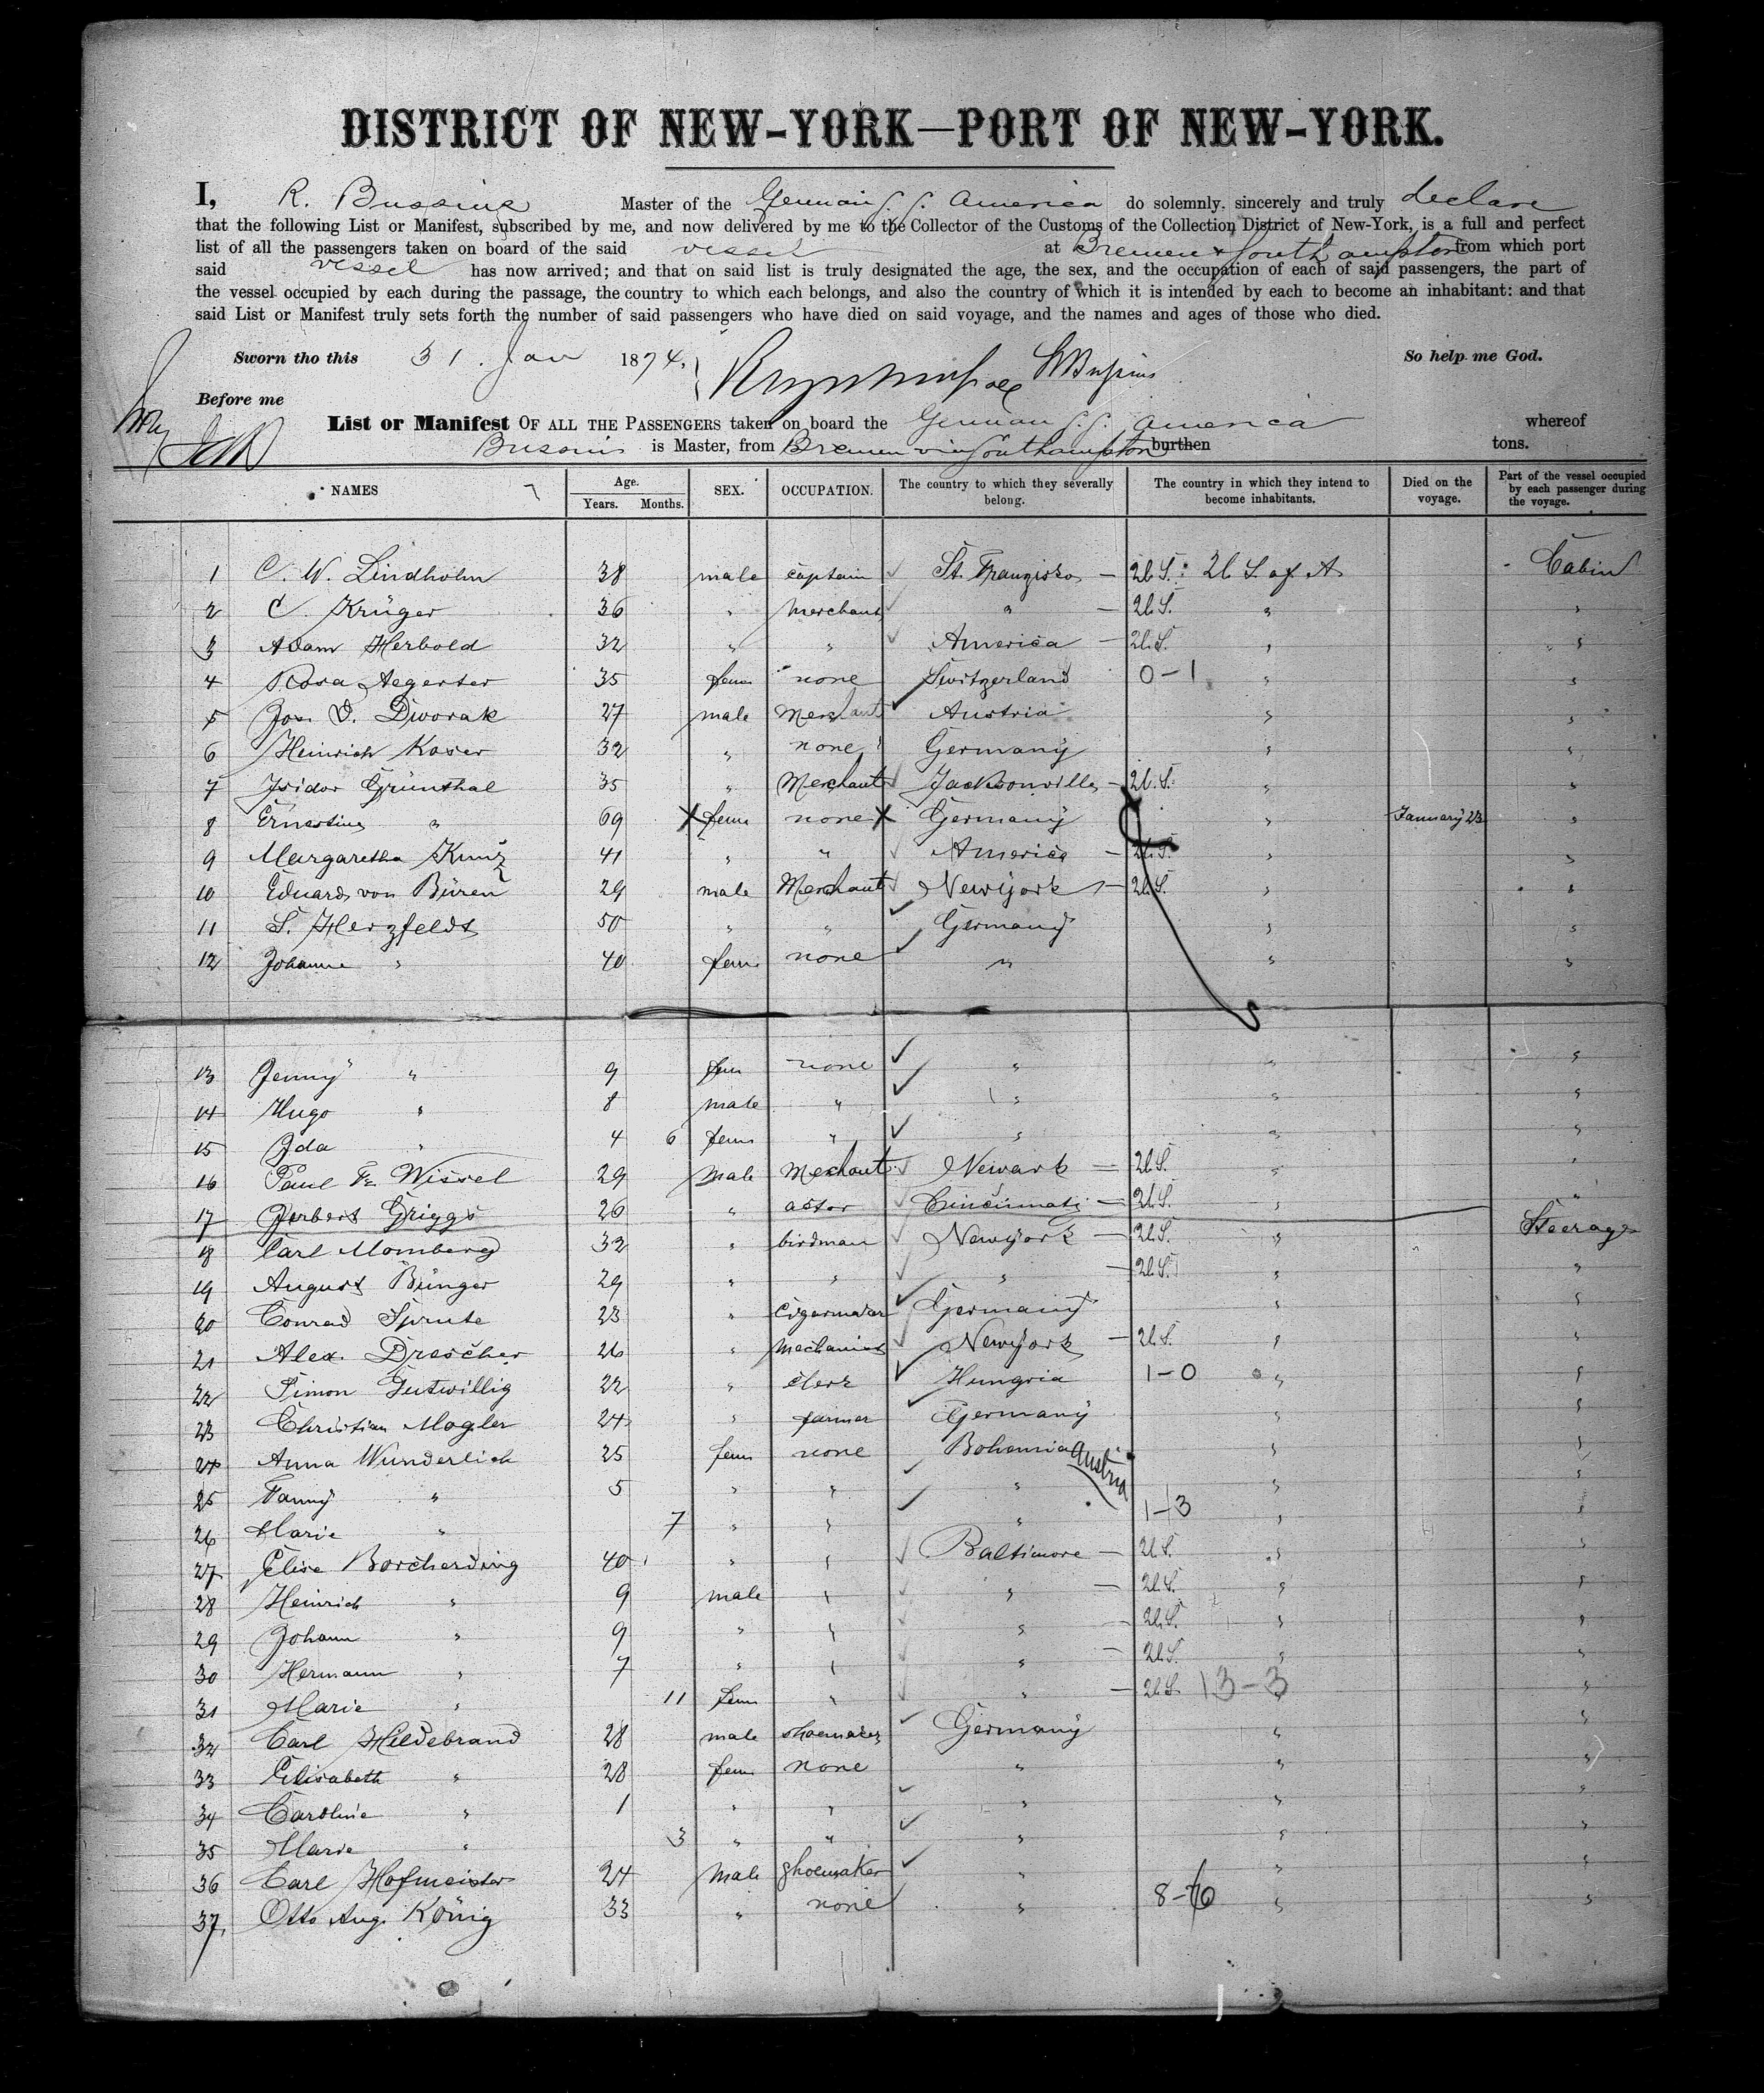 DISTRICT OF NEW-YORK—PORT OF NEW-YORK.
I, R. Bussius Master of the German S. S. America do solemnly, sincerely and truly declare
that the following List or Manifest, subscribed by me, and now delivered by me to the Collector of the Customs of the Collection District of New-York, is a full and perfect
list of all the passengers taken on board of the said vessel at Bremen & Southampton from which port
said vessel has now arrived; and that on said list is truly designated the age, the sex, and the occupation of each of said passengers, the part of
the vessel occupied by each during the passage, the country to which each belongs, and also the country of which it is intended by each to become an inhabitant: and that
said List or Manifest truly sets forth the number of said passengers who have died on said voyage, and the names and ages of those who died.
Sworn tho this 31. Jan 1874. Bussius So help me God.
Before me
List or Manifest OF ALL THE PASSENGERS taken on board the German S. S. America whereof
Bussius is Master, from Bremen via Southampton burthen tons.
NAMES Age. Years. Months. SEX. OCCUPATION. The country to which they severally belong. The country in which they intend to become inhabitants. Died on the voyage. Part of the vessel occupied by each passenger during the voyage.
1 C. W. Lindholm 38 male captain St. Franzisko — U.S. U. S. of A. Cabin
2 C. Krüger 36 " Merchant " — U.S. " "
3 Adam Herbold 32 " " America — U.S. " "
4 Rosa Aegerter 35 fem none Switzerland 0-1 " "
5 Jos. D. Dworak 27 male Merchant Austria " "
6 Heinrich Koser 32 " none Germany " "
7 Isidor Grünthal 35 " Merchant Jacksonville — U.S. " "
8 Ernestine " 69 fem none Germany " January 23 "
9 Margaretha Kunz 41 " " America — U.S. " "
10 Eduard von Büren 29 male Merchant Newyork — U.S. " "
11 S. Herzfeldt 50 " " Germany " "
12 Johanne " 40 fem none " " "
13 Jenny " 9 fem none " " "
14 Hugo " 8 male " " " "
15 Ida " 4 6 fem " " " "
16 Paul Fr. Wissel 29 male Merchant Newark — U.S. " "
17 Herbert Griggs 26 " actor Cincinnati — U.S. " "
18 Carl Momberg 32 " birdman Newyork — U.S. " Steerage
19 August Bünger 29 " " " — U.S. " "
20 Conrad Sprute 23 " Cigarmaker Germany " "
21 Alex. Drescher 26 " mechanics Newyork — U.S. " "
22 Simon Gutwillig 22 " clerk Hungria 1-0 " "
23 Christian Mogler 24 " farmer Germany " "
24 Anna Wunderlich 25 fem none Bohemia Austria " "
25 Fanny " 5 " " " " "
26 Marie " 7 " " " 1-3 " "
27 Elise Borcherding 40 " " Baltimore — U.S. " "
28 Heinrich " 9 male " " — U.S. " "
29 Johann " 9 " " " — U.S. " "
30 Hermann " 7 " " " — U.S. " "
31 Marie " 11 fem " " — U.S. 13-3 " "
32 Carl Hildebrand 28 male shoemaker Germany " "
33 Elisabeth " 28 fem none " " "
34 Caroline " 1 " " " " "
35 Marie " 3 " " " " "
36 Carl Hofmeister 24 male shoemaker " " "
37 Otto Aug. König 33 " none " " "